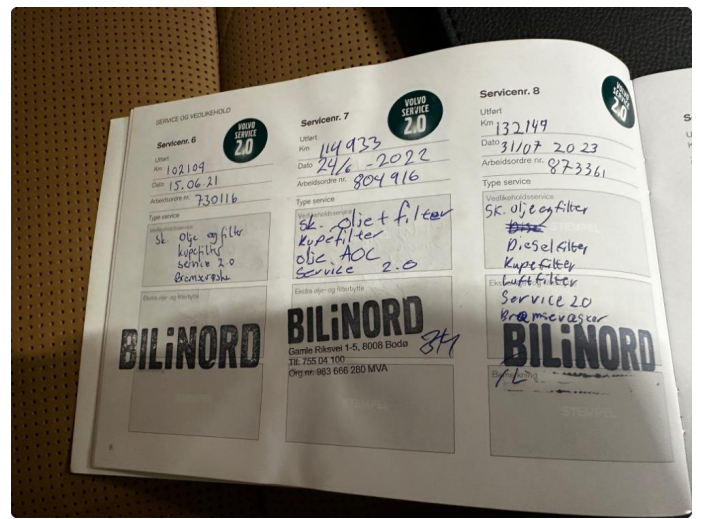 SERVICE OG VEDLIKEHOLD
Servicenr. 6
VOLVO
SERVICE
2.0
Utført
Km 102109
Dato 15.06.21
Arbeidsordre nr. 730116
Type service
Vedlikeholdsservice
Sk. Olje og filter
kupefilter
Service 2.0
Bremsevæske
Ekstra olje- og filterbytte
BILiNORD
STEMPEL
8
Servicenr. 7
VOLVO
SERVICE
2.0
Utført
Km 114933
Dato 24/6 -2022
Arbeidsordre nr. 804916
Type service
Vedlikeholdsservice
Sk. olje + filter
Kupefilter
olje AOC
Service 2.0
Ekstra olje- og filterbytte
BILiNORD
Gamle Riksvei 1-5, 8008 Bodø
Tlf: 755 04 100
Org nr: 983 666 280 MVA
STEMPEL
Servicenr. 8
VOLVO
SERVICE
2.0
Utført
Km 132149
Dato 31/07 2023
Arbeidsordre nr. 873361
Type service
Vedlikeholdsservice
SK. olje og filter
STEMPEL
Dieselfilter
Kupefilter
Luftfilter
Service 2.0
Bremsevæsker
BILiNORD
STEMPEL